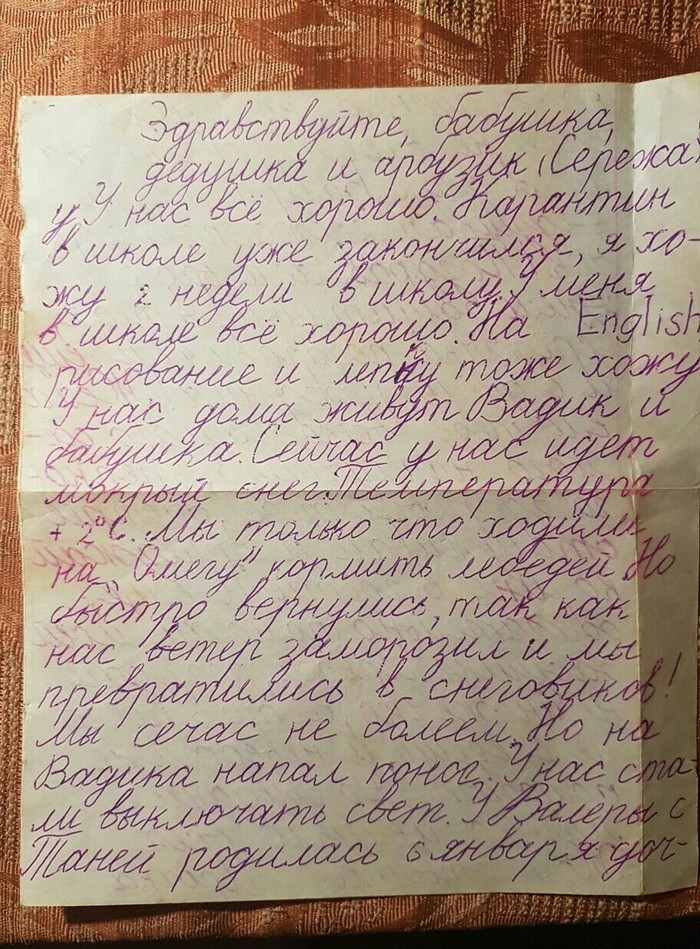 Здравствуйте, бабушка,
дедушка и арбузик (Сережа)
У нас всё хорошо. Карантин
в школе уже закончился, я хо-
жу 2 недели в школу. У меня
в школе всё хорошо. На English
рисование и лепку тоже хожу
У нас дома живут Вадик и
бабушка. Сейчас у нас идет
мокрый снег. Температура
+ 2°C. Мы только что ходили
на „Омегу" кормить лебедей Но
быстро вернулись, так как
нас ветер заморозил и мы
превратились в снеговиков!
Мы сечас не болеем. Но на
Вадика напал понос. У нас ста-
ли выключать свет. У Валеры с
Таней родилась 6 января доч-